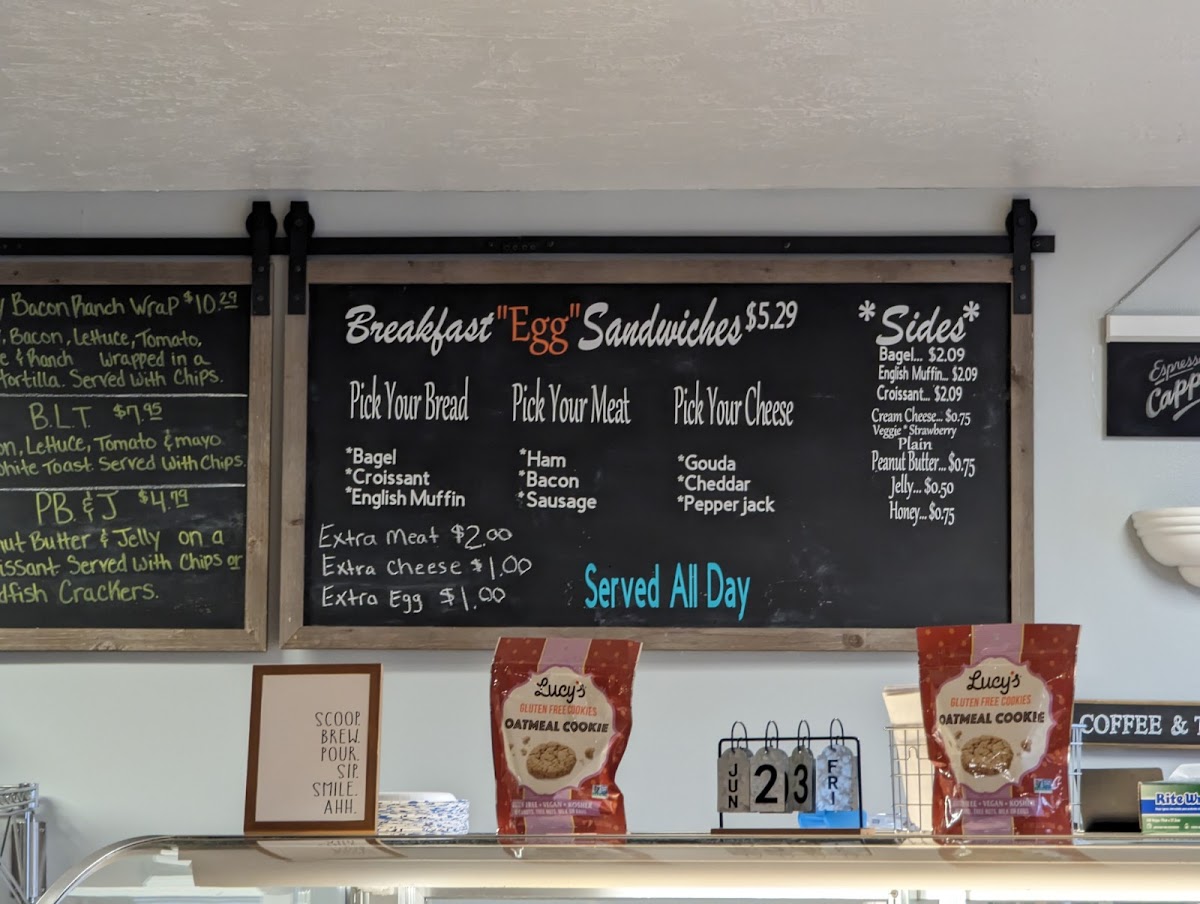 Bacon Ranch Wrap $10.29
Bacon, Lettuce, Tomato,
& Ranch Wrapped in a
tortilla. Served with Chips.
B.L.T $7.95
Lettuce, Tomato & mayo
White Toast Served With Chips.
P.B. & J $4.79
Butter & Jelly on a
Served with Chips or
Crackers.
Breakfast "Egg" Sandwiches $5.29
Pick Your Bread
*Bagel
*Croissant
*English Muffin
Pick Your Meat
*Ham
*Bacon
*Sausage
Pick Your Cheese
*Gouda
*Cheddar
*Pepper jack
Extra Meat $2.00
Extra Cheese $1.00
Extra Egg $1.00
Served All Day
*Sides*
Bagel... $2.09
English Muffin... $2.09
Croissant... $2.09
Cream Cheese... $0.75
Veggie * Strawberry
Plain
Peanut Butter... $0.75
Jelly... $0.50
Honey... $0.75
SCOOP.
BREW.
POUR.
SIP.
SMILE.
AHH.
Lucy's
GLUTEN FREE COOKIES
OATMEAL COOKIE
JUN
23
FRI
Lucy's
GLUTEN FREE COOKIES
OATMEAL COOKIE
COFFEE &